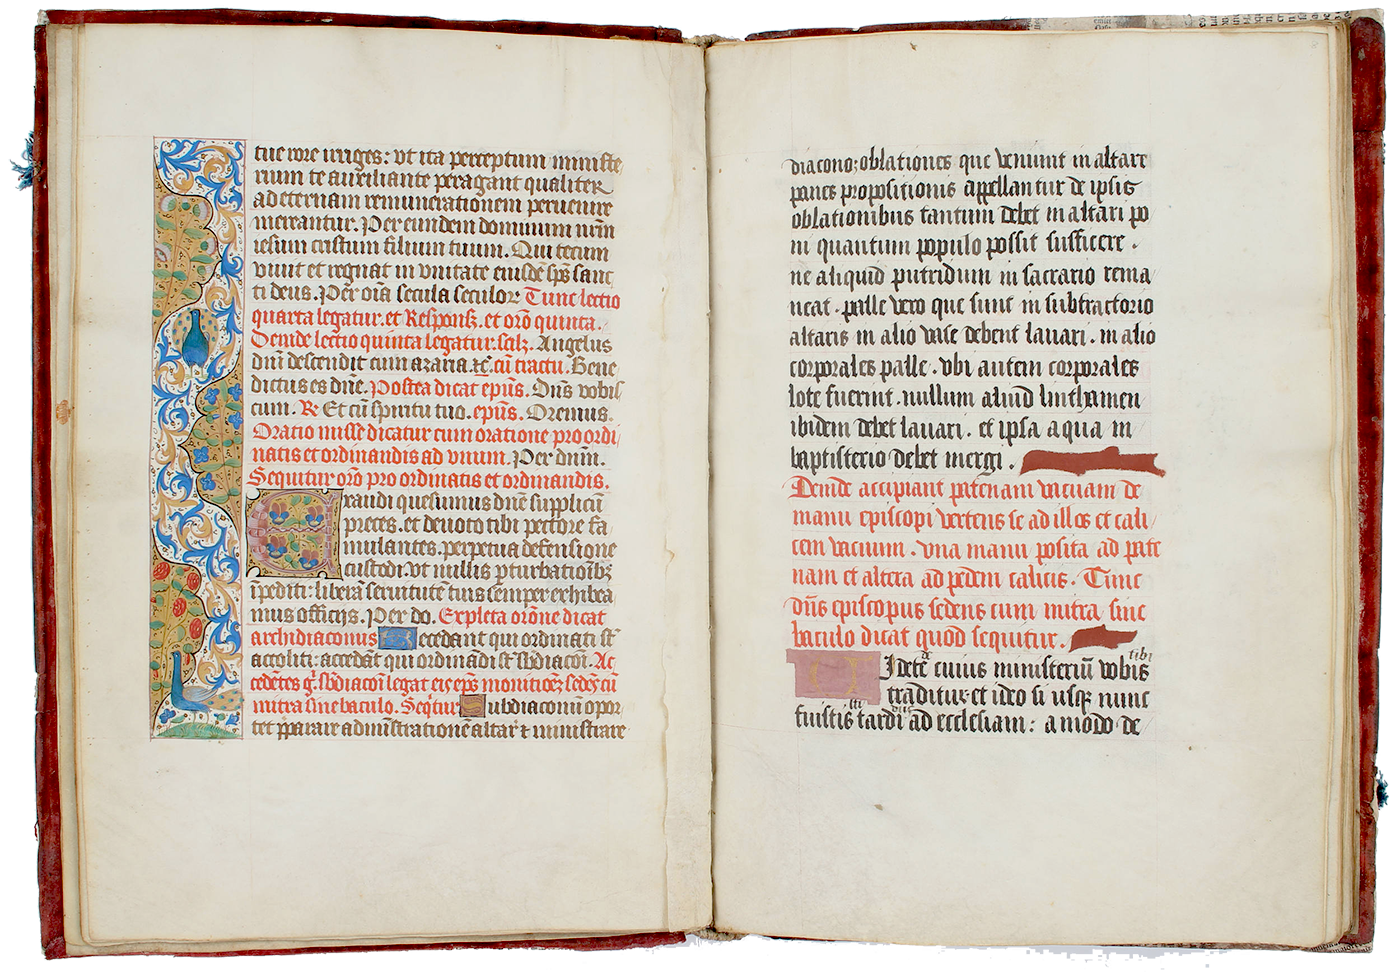 tue rore irriges: ut ita perceptum ministe
rium te auxiliante peragant qualiter
ad eternam remunerationem peruenire
mereantur. Per eundem dominum nrm̄
iesum cristum filium tuum. Qui tecum
viuit et regnat in vnitate eiusdē spūs sanc
ti deus. Per oīa secula seculoꝝ Tunc lectio
quarta legatur. et Responsꝫ. et orō quinta.
Deinde lectio quinta legatur. scilꝫ. Angelus
dnī descendit cum azaria ⁊c̄. cū tractu. Bene
dictus es dnē. Postea dicat epūs. Dn̄s vobis
cum. R Et cū spiritu tuo. epūs. Oremus.
Oratio misse dicatur cum oratione pro ordi
natis et ordinandis ad vnum. Per dnm̄.
Sequitur orō pro ordinatis et ordinandis.
Exaudi quesumus dnē supplicū
preces. et deuoto tibi pectore fa
mulantes. perpetua defensione
custodi. vt nullis ꝑturbationībꝫ
īpediti: liberā seruitutē tuis semper exhibea
mus officijs. Per do. Expleta orōne dicat
archidiaconus Recedant qui ordinati st̄
accoliti: accedāt qui ordinādi st̄ sb̄diacoī. Ac
cedētes gͥ. sb̄diacoī legat eis epūs monitiōeꝫ sedēs cū
mitra sine baculo. Seqͥtur Subdiaconū opor
tet p̄parare ad minīstrationē altarꝭ ⁊ ministrare
diacono: oblationes que veniunt in altare
panes propositionis appellantur de ipsis
oblationibus tantum debet in altari po
ni quantum populo possit sufficere .
ne aliquid putridum in sacrario rema
neat . palle vero que sunt in substractorio
altaris in alio vase debent lauari . in alio
corporales palle . vbi autem corporales
lote fuerint . nullum aliud linthamen
ibidem debet lauari . et ipsa aqua in
baptisterio debet mergi .
Deinde accipiant patenam vacuam de
manu episcopi vertens se ad illos et cali
cem vacuum . vna manu posita ad pate
nam et altera ad pedem calicis . Tunc
dn̄s episcopus sedens cum mitra sine
baculo dicat quod sequitur .
VIdete cuius ministeriū vobis tibi
traditur et ideo si vsqꝫ nunc
fuistis tardi ad ecclesiam : amodo de